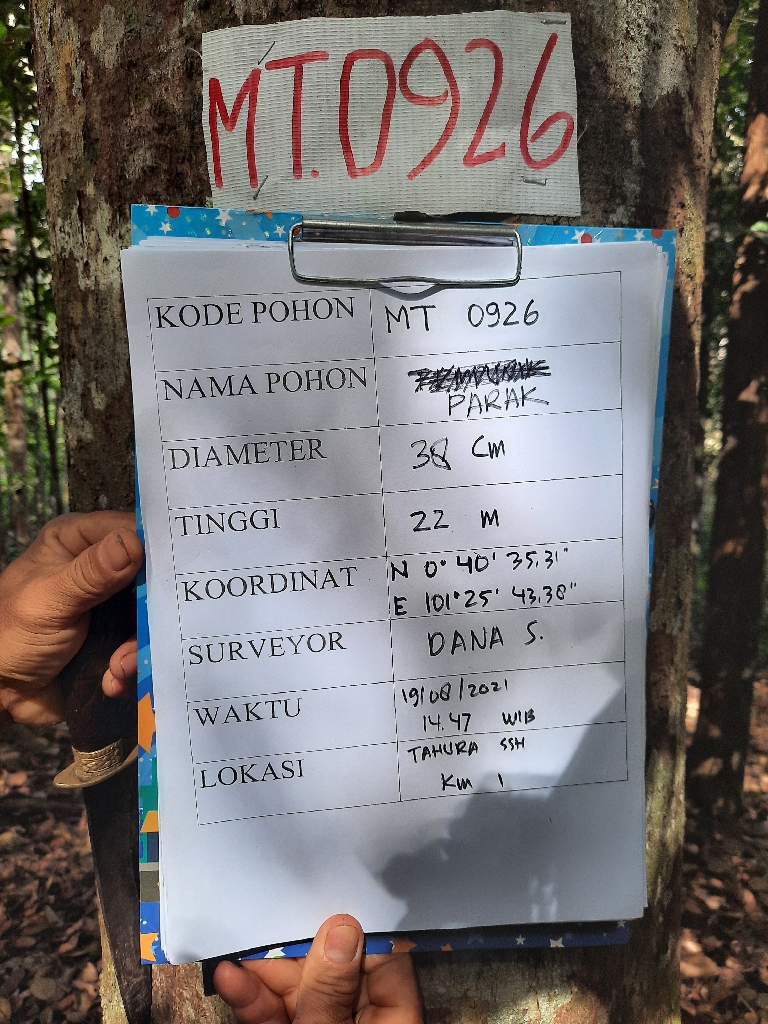 MT.0926
KODE POHON MT 0926
NAMA POHON PARAK
DIAMETER 38 Cm
TINGGI 22 M
KOORDINAT N 0° 40' 35.31"
E 101° 25' 43.38"
SURVEYOR DANA S.
WAKTU 19/08/2021
14.47 WIB
LOKASI TAHURA SSH
Km 1